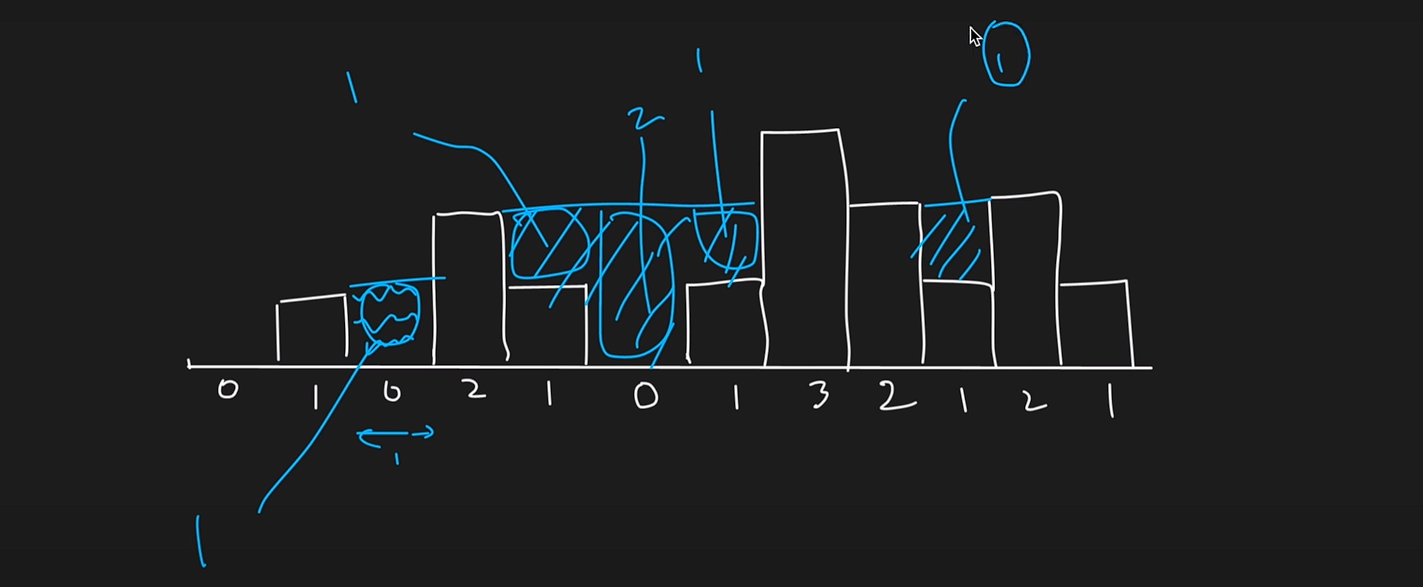 1
2
1
1
0 1 0 2 1 0 1 3 2 1 2 1
1
1